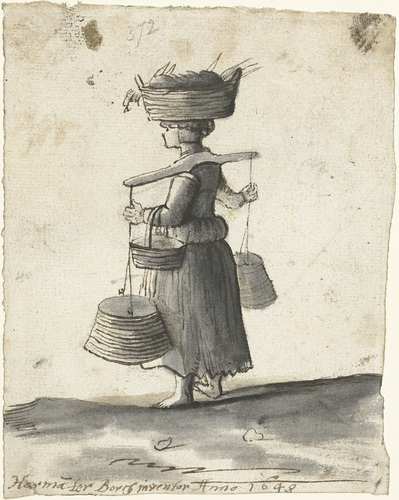 372
Harma ter Borch inventor Anno 1648